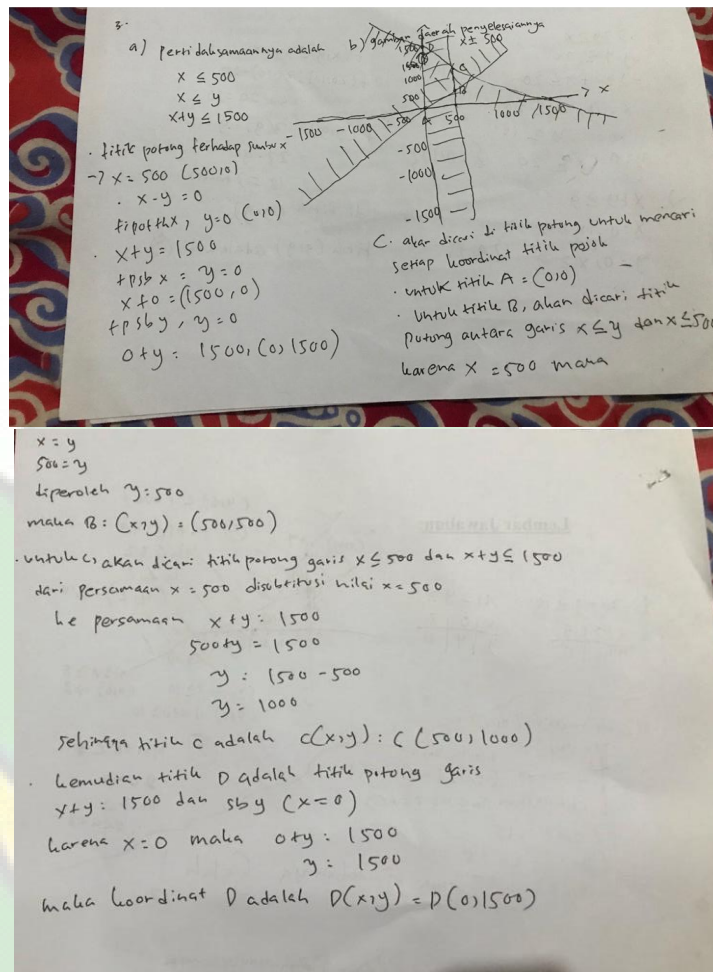 3.
a) pertidaksamaannya adalah
x ≤ 500
x ≤ y
x+y ≤ 1500
. titik potong terhadap sumbu x
-> x = 500 (500,0)
. x-y = 0
tipotthx, y=0 (0,0)
. x+y = 1500
tpsb x = y=0
x+0 = (1500,0)
tpsby, y=0
0+y = 1500, (0,1500)
b) gambar daerah penyelesaiannya
x ± 500
1500 D
1000
500
C
B
x
-1500 -1000 -500 A 500 1000 1500
-500
-1000
-1500
C. akan dicari di titik potong untuk mencari
setiap koordinat titik pojok
. untuk titik A = (0,0)
. Untuk titik B, akan dicari titik
potong antara garis x ≤ y dan x ≤ 500
karena x = 500 maka
x = y
500 = y
diperoleh y = 500
maka B: (x,y) = (500,500)
. untuk C, akan dicari titik potong garis x ≤ 500 dan x+y ≤ 1500
dari persamaan x = 500 disubtitusi nilai x = 500
ke persamaan x+y = 1500
500+y = 1500
y = 1500 - 500
y = 1000
sehingga titik C adalah C(x,y) : C (500,1000)
. kemudian titik D adalah titik potong garis
x+y = 1500 dan sby (x=0)
karena x=0 maka 0+y = 1500
y = 1500
maka koordinat D adalah D(x,y) = D(0,1500)